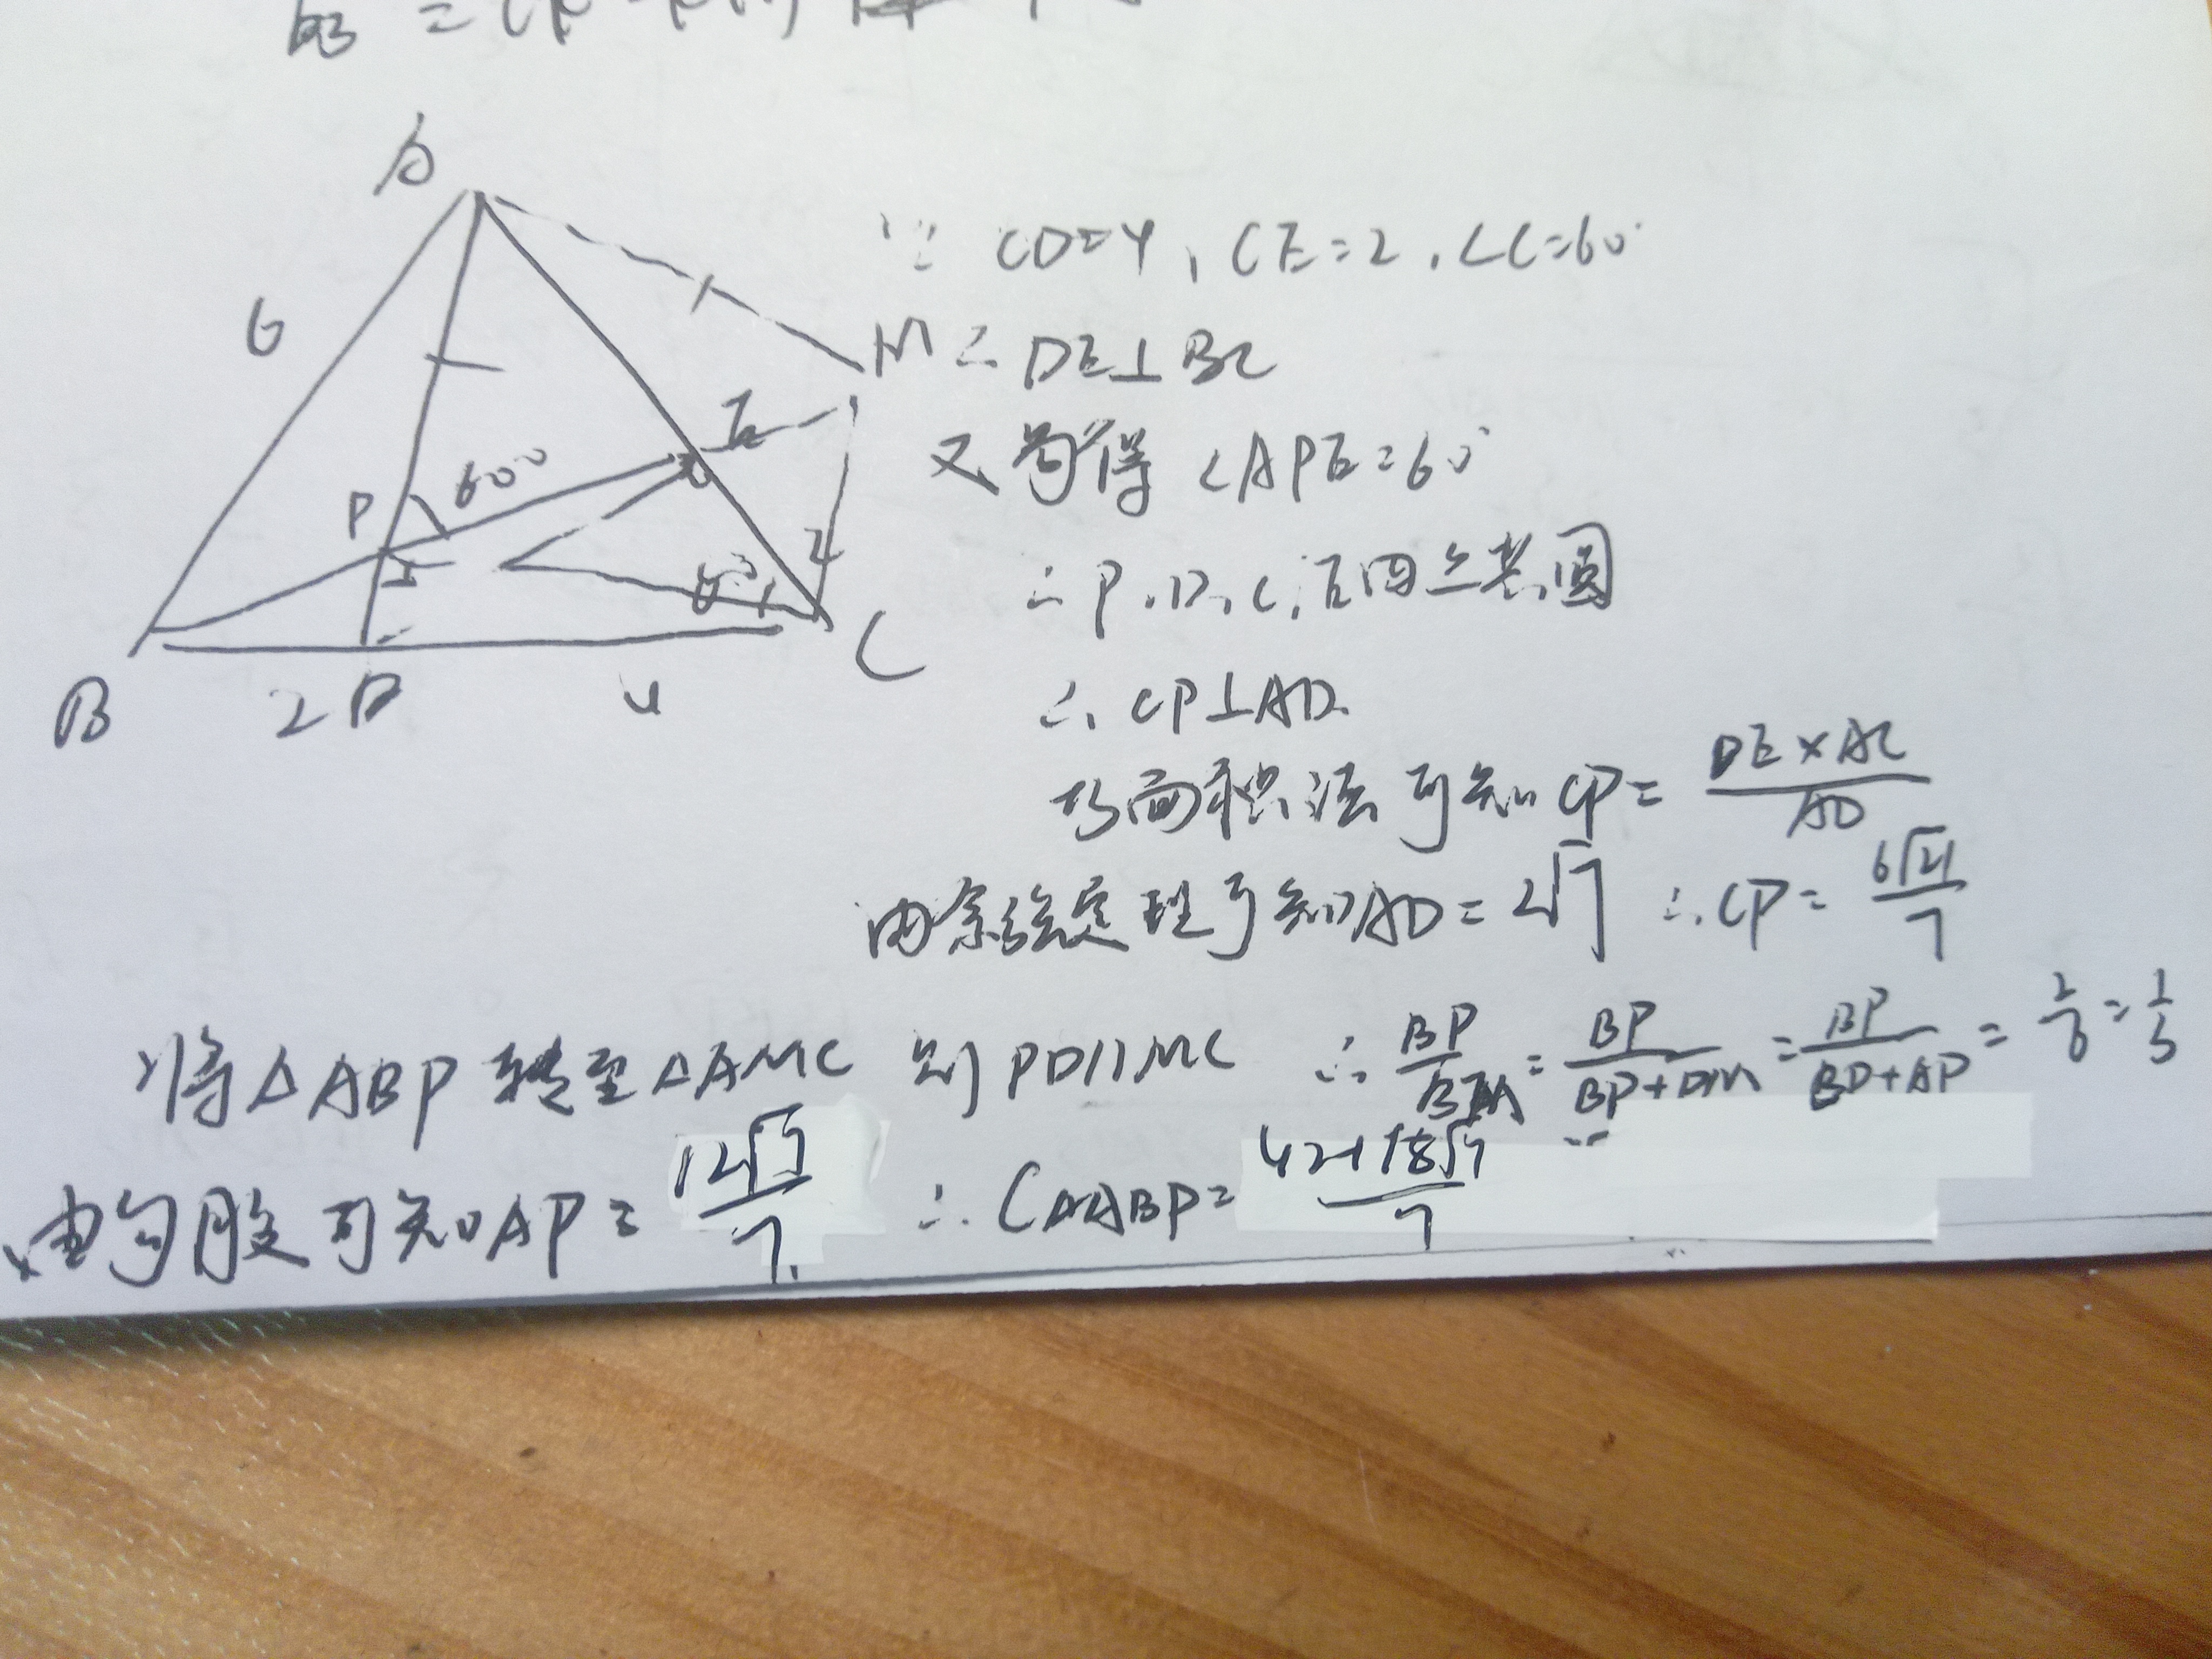 A
6
M
E
P 60°
2
60°
B 2 D 4 C
∵ CD=4, CE=2, ∠C=60°
∴ DE⊥BC
又易得∠APE=60°
∴ P, D, C, E四点共圆
∴ CP⊥AD
由面积法可知CP= DE×AC/AD
由余弦定理可知AD=2√7 ∴ CP= 6√21/7
将△ABP转至△AMC 则PD∥MC ∴ BP/BM = BP/(BP+PM) = BP/(BP+AP) = 2/6 = 1/3
由勾股可知AP= 12√7/7 ∴ C△ABP= (42+18√7)/7